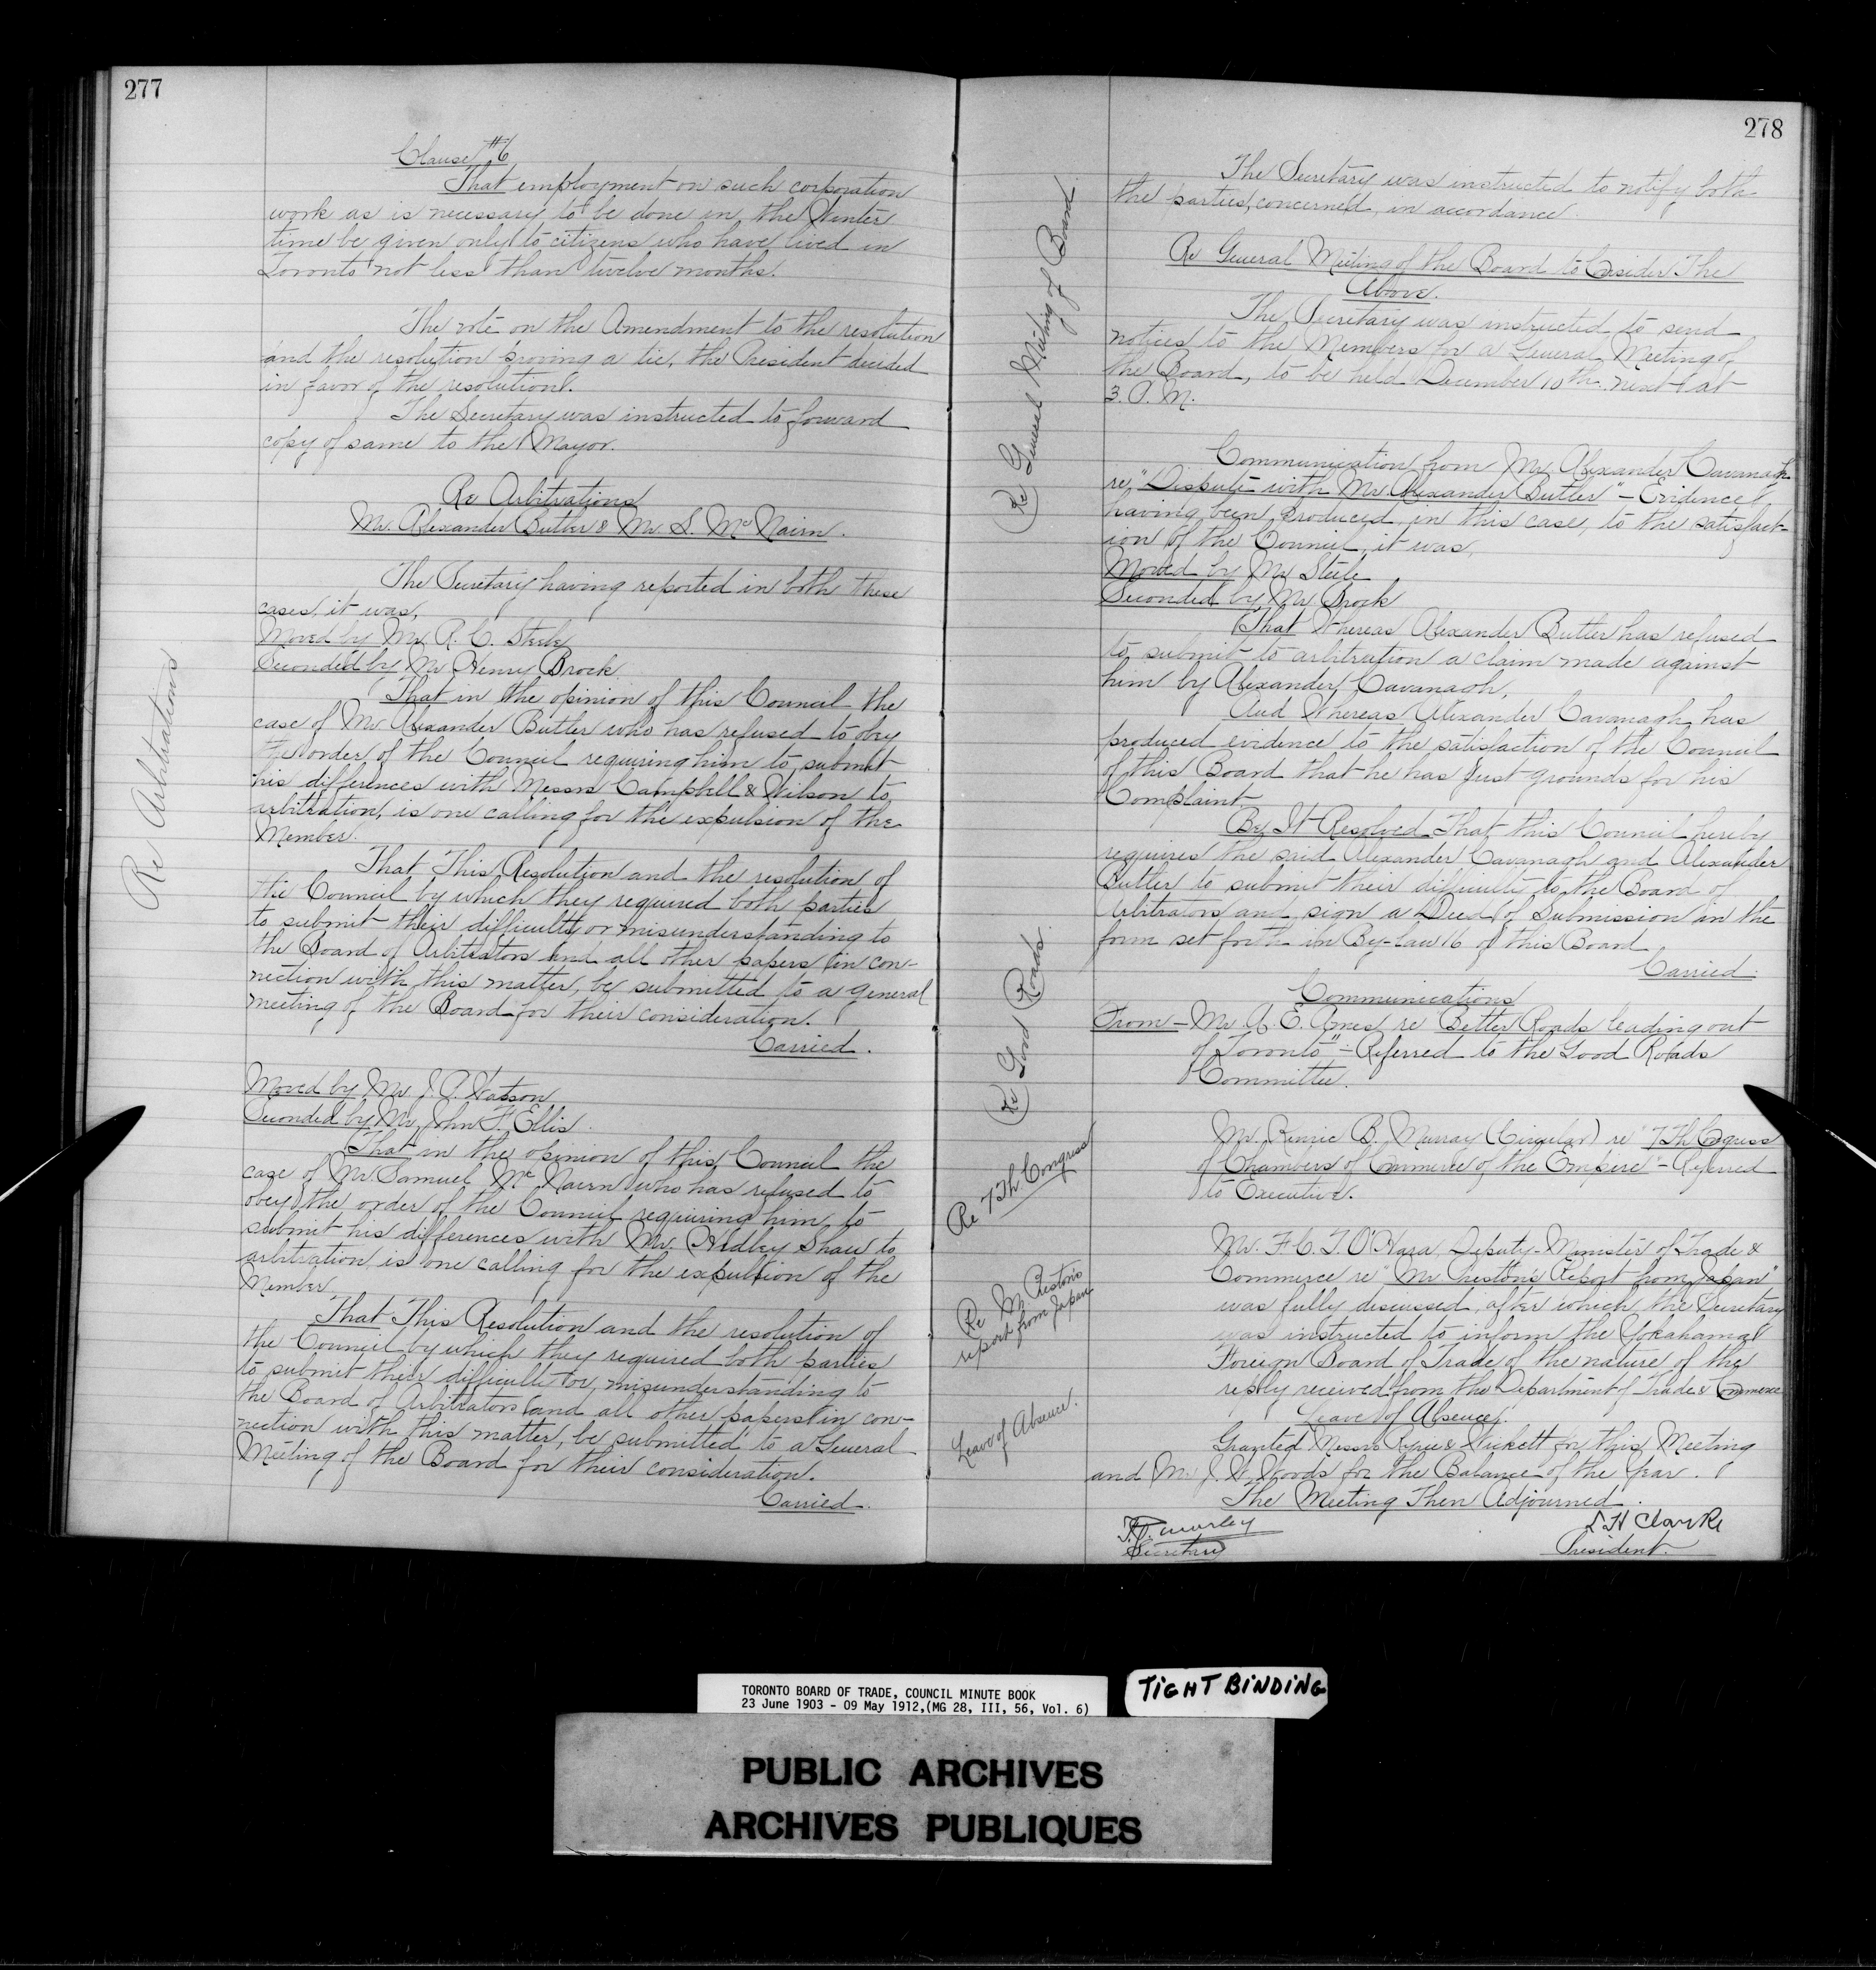 277
Clause #6
That employment on such corporation
work as is necessary to be done in the Winter
time be given only to citizens who have lived in
Toronto not less than twelve months.
The vote on the Amendment to the resolution
and the resolution proving a tie, the President decided
in favor of the resolution.
The Secretary was instructed to forward
copy of same to the Mayor.
Re Arbitrations
Mr. Alexander Butler & Mr. S. McNairn.
Re Arbitrations
The Secretary having reported in both these
cases, it was,
Moved by Mr. R. C. Steele
Seconded by Mr Henry Brock
That in the opinion of this Council the
case of Mr Alexander Butler who has refused to obey
the order of the Council requiring him to submit
his differences with Messrs Campbell & Wilson to
arbitration, is one calling for the expulsion of the
Member.
That This Resolution and the resolution of
the Council by which they required both parties
to submit their difficulty or misunderstanding to
the Board of Arbitrators and all other papers in con-
nection with this matter, be submitted to a general
meeting of the Board for their consideration.
Carried.
Moved by Mr J. P. Watson
Seconded by Mr. John F. Ellis.
That in the opinion of this Council the
case of Mr Samuel McNairn who has refused to
obey the order of the Council requiring him to
submit his differences with Mr. Hedley Shaw to
arbitration is one calling for the expulsion of the
Member.
That This Resolution and the resolution of
the Council by which they required both parties
to submit their difficulty or misunderstanding to
the Board of Arbitrators and all other papers in con-
nection with this matter, be submitted to a General
Meeting of the Board for their consideration.
Carried.
278
The Secretary was instructed to notify both
the parties, concerned, in accordance
Re General Meeting of the Board to Consider The
Above.
Re General Meeting of Board.
The Secretary was instructed to send
notices to the Members for a General Meeting of
the Board, to be held December 10th next at
3. P. M.
Communication from Mr Alexander Cavanagh
re "Dispute with Mr Alexander Butler" - Evidence
having been produced, in this case, to the satisfact-
ion of the Council, it was,
Moved by Mr Steele
Seconded by Mr Brock
That Whereas Alexander Butler has refused
to submit to arbitration a claim made against
him by Alexander Cavanagh,
And Whereas Alexander Cavanagh has
produced evidence to the satisfaction of the Council
of this Board that he has just grounds for his
Complaint
Be It Resolved That this Council hereby
requires the said Alexander Cavanagh and Alexander
Butler to submit their difficulty to the Board of
Arbitrators and sign a Deed of Submission in the
form set forth in By-Law 16 of this Board
Carried.
Communications
Re Good Roads.
From - Mr A. E. Ames re "Better Roads leading out
of Toronto" - Referred to the Good Roads
Committee.
Re 7th Congress
Mr. Kenric B. Murray (Circular) re "7th Congress
of Chambers of Commerce of the Empire" - Referred
to Executive.
Re Mr Preston's
report from Japan
Mr. F. C. T. O'Hara, Deputy-Minister of Trade &
Commerce re "Mr Preston's Report from Japan"
was fully discussed, after which the Secretary
was instructed to inform the Yokahama
Foreign Board of Trade of the nature of the
reply received from the Department of Trade & Commerce
Leave of Absence.
Leave of Absence.
Granted Messrs & for this Meeting
and Mr J. W. Woods for the Balance of the Year.
The Meeting Then Adjourned.
F. G. Morley
Secretary
L H Clarke
President.
TORONTO BOARD OF TRADE, COUNCIL MINUTE BOOK
23 June 1903 - 09 May 1912,(MG 28, III, 56, Vol. 6)
TIGHT BINDING
PUBLIC ARCHIVES
ARCHIVES PUBLIQUES